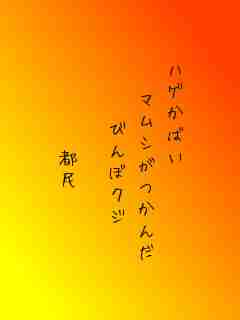 ハゲかばい
マムシがつかんだ
びんぼクジ
都民